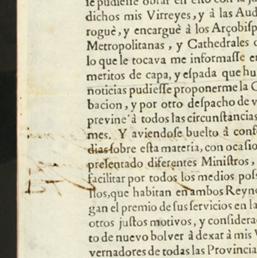 se pudiesse obrar en esto con la ju
dichos mis Virreyes, y à las Aud
roguè, y encarguè à los Arçobisp
Metropolitanas, y Cathedrales d
lo que le tocava me informasse en
meritos de capa, y espada que hu
noticias pudiesse proponerme la C
bacion, y por otro despacho de v
previne à todos las circunstancias
mes. Y aviendose buelto à confe
dias sobre esta materia, con ocasio
presentado diferentes Ministros,
facilitar por todos los medios pos
llos, que habitan en ambos Reyn
gan el premio de sus servicios en la
otros justos motivos, y considera
to de nuevo bolver à dexar à mis V
vernadores de todas las Provincia